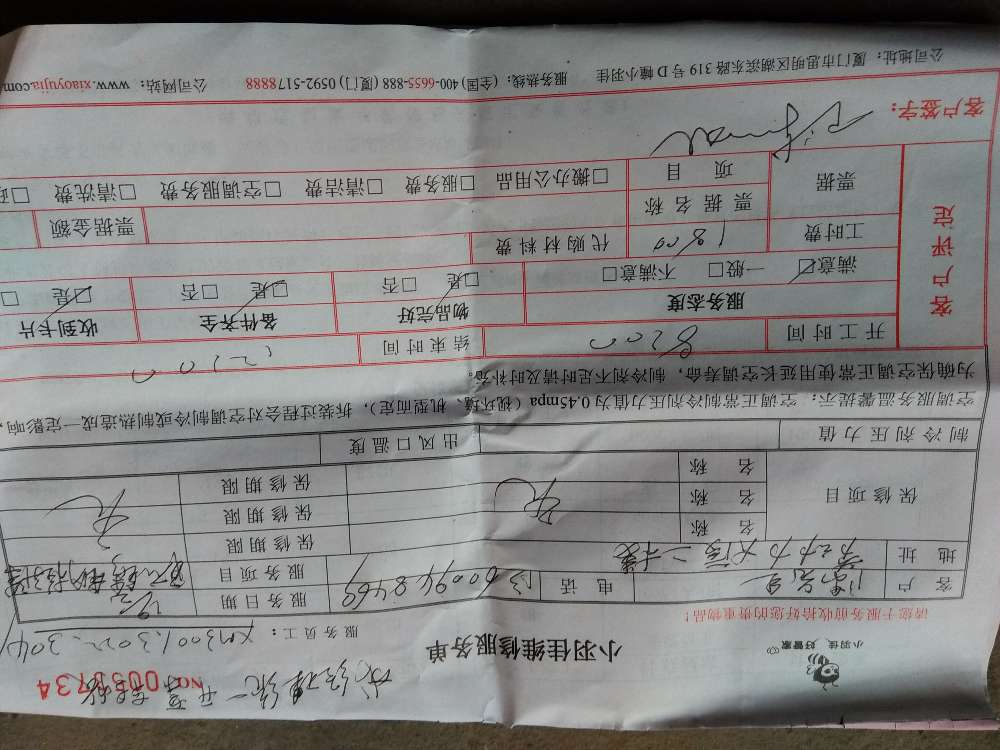 NO. 0053734
小羽佳 好管家
小羽佳维修服务单
服务员工：XM3001.3022.3041
请您于服务前收拾好您的贵重物品！
客户 电话 13600948469 服务日期
地址 服务项目
保修项目 名称 无 保修期限 无
名称 保修期限
名称 保修期限
制冷剂压力值 出风口温度
空调服务温馨提示：空调正常制冷剂压力值为0.45mpa（视环境、机型而定），拆装过程会对空调制冷或制热造成一定影响，
为确保空调正常使用延长空调寿命，制冷剂不足时请及时补充。
客户评定
开工时间 8:00 结束时间
服务态度 物品完好 备件齐全 收到卡片
满意☑ 一般□ 不满意□ ☑是 □否 ☑是 □否 ☑是 □
工时费 1800 代购材料费
票据 票据名称 票据金额
项目 □搬办公用品 □服务费 □清洁费 □空调服务费 □清洗费
客户签字：
公司地址：厦门市思明区湖滨东路319号D幢小羽佳 服务热线：（全国）400-6655-888（厦门）0592-5178888 公司网站：www.xiaoyujia.com